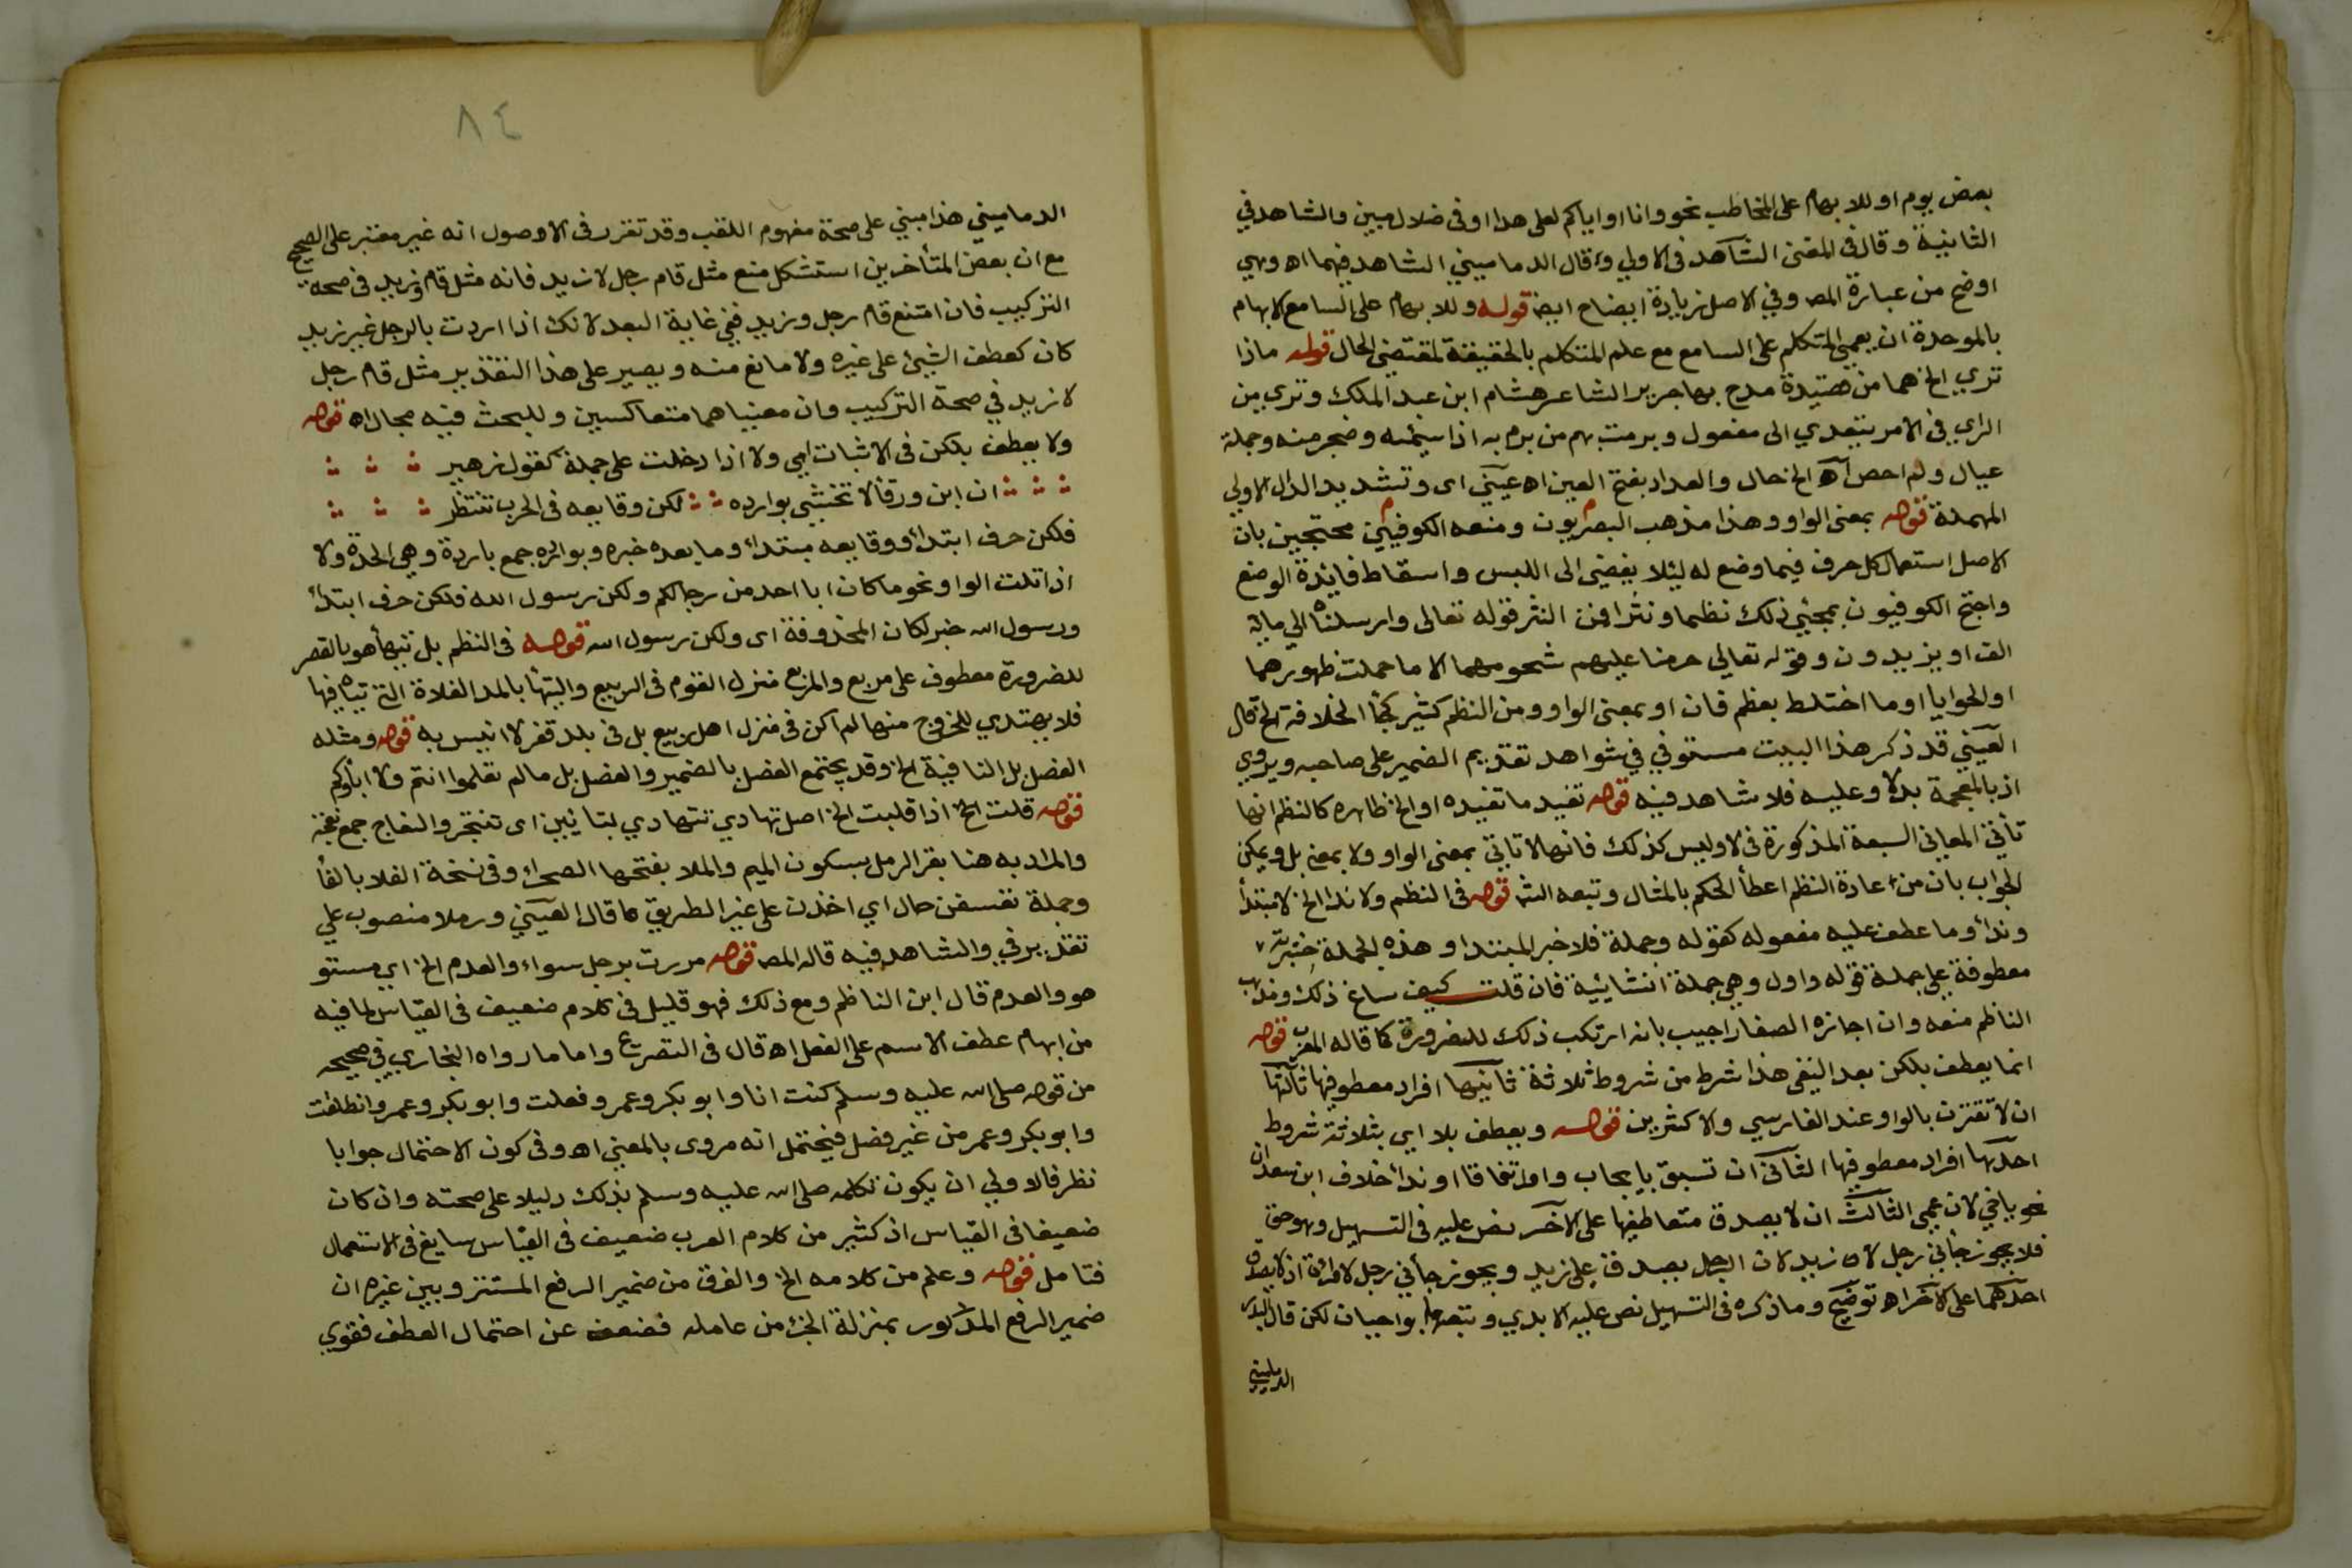 بعض يوم او للابهام على المخاطب نحو وانا او اياكم لعلى هدا او في ضلال مبين والشاهد في
الثانية وقال في المغنى الشاهد في الاولي وقال الدماميني الشاهد فيهما اه وهي
اوضح من عبارة المص وفي الاصل زيادة ايضاح ايضا قوله وللابهام على السامع الابهام
بالموحدة ان يعمي المتكلم على السامع مع علم المتكلم بالحقيقة لمقتضى الحال قوله ماذا
تري الخ هما من قصيدة مدح بها جرير الشاعر هشام ابن عبد الملك وتري من
الراي في الامر يتعدي الى مفعول وبرمت بهم من برم به اذا سئمه وضجر منه وجملة
عيال ولم احص اه الخ حال والعداد بفتح العين اه عيني اى وتشديد الدال الاولي
المهملة قوله بمعنى الواو وهذا مذهب البصريون ومنعه الكوفيين محتجين بان
الاصل استعمال كل حرف فيما وضع له ليئلا يفضي الى اللبس واسقاط فايدة الوضع
واحتج الكوفيون بمجئي ذلك نظما ونثرا فمن النثر قوله تعالى وارسلناه الي ماية
الف او يزيدون وقوله تعالي حرمنا عليهم شحومهما الا ما حملت ظهورهما
او الحوايا او ما اختلط بعظم فان او بمعنى الواو ومن النظم كثير كجا الخلافة الخ قال
العيني قد ذكر هذا البيت مستوفي في شواهد تقديم الضمير على صاحبه ويروي
اذ بالمعجمة بدلا وعليه فلا شاهد فيه قوله تفيد ما تفيده او الخ ظاهره كالنظم انها
تأتي المعاني السبعة المذكورة في لا وليس كذلك فانها لا تاتي بمعنى الواو ولا بمعنى بل ويمكن
الجواب بان من عادة النظم اعطأ الحكم بالمثال وتبعه الش قوله في النظم ولا ندا الخ لا مبتدأ
وندأ وما عطف عليه مفعوله كقوله وجملة فلا خبر المبتدا وهذه الجملة خبرية
معطوفة على جملة قوله واول وهي جملة انشائية فان قلت كيف ساغ ذلك ومذهب
الناظم منعه وان اجازه الصفار اجيب بانه ارتكب ذلك للضرورة كما قاله المعرب قوله
انما يعطف بلكن بعد النفي هذا شرط من شروط ثلاثة ثانيها افراد معطوفيها ثالثها
ان لا تقترن بالواو عند الفارسي والاكثرين قوله ويعطف بلا اي بثلاثة شروط
احدها افراد معطوفيها الثاني ان تسبق بايجاب وامر اتفاقا او ندأ خلاف ابن سعدان
نحو يا اخي لا ابن عمي الثالث ان لا يصدق متعاطفيها على الآخر نص عليه في التسهيل وهو حق
فلا يجوز جأني رجل لا زيد لان الرجل يصدق على زيد ويجوز جأني رجل لا امراة اذ لا يصدق
احدهما على الآخر اه توضيح وما ذكره في التسهيل نص عليه الابدي وتبعها ابو احيان لكن قال البدر
الدماميني
٨٤
الدماميني هذا مبني على صحة مفهوم اللقب وقد تقرر في الاوصول انه غير معتبر على الصحيح
مع ان بعض المتأخرين استشكل منع مثل قام رجل لا زيد فانه مثل قام وزيد في صحة
التركيب فان امتنع قام رجل وزيد ففي غاية البعد لانك اذا اردت بالرجل غير زيد
كان كعطف الشيئ على غيره ولا مانع منه ويصير على هذا التقدير مثل قام رجل
لا زيد في صحة التركيب وان معنياهما متعاكسين وللبحث فيه مجال اه قوله
ولا يعطف بلكن في الاثبات ايي ولا اذا دخلت على جملة كقول زهير
ان ابن ورقأ لا تخشى بوادره لكن وقايعه في الحرب تنتظر
فلكن حرف ابتدأ ووقايعه مبتدأ وما بعده خبره وبوادره جمع بادرة وهي الحدة ولا
اذا تلت الواو نحو ما كان ابا احد من رجالكم ولكن رسول الله فلكن حرف ابتدأ
ورسول الله خبر لكان المحذوفة اى ولكن رسول الله قوله في النظم بل تيهأ هو بالقصر
للضرورة معطوف على مربع والمربع منزل القوم في الربيع والتيهأ بالمد الفلاة التي يتاه فيها
فلا يهتدي للخروج منها لم اكن في منزل اهل ربيع بل في بلد قفر لا انيس به قوله ومثله
الفضل بل النافية الخ وقد يجتمع الفضل بالضمير والفضل بل ما لم تعلموا انتم ولا اباؤكم
قوله قلت الخ اذا قلبت الخ اصل تهادي تتهادي بتائين اى تتبختر والنعاج جمع نعجة
والمراد به هنا بقر الرمل بسكون الميم والملا بفتحها الصحرأ وفي نسخة الفلا بالفأ
وجملة تعسفن حال اي اخذن على غير الطريق كما قال العيني ورملا منصوب علي
تقدير في والشاهد فيه قاله المص قوله مررت برجل سواء والعدم الخ اي مستو
هو والعدم قال ابن الناظم ومع ذلك فهو قليل في كلام ضعيف في القياس لما فيه
من ابهام عطف الاسم على الفعل اه قال في التصريح واما ما رواه البخاري في صحيحه
من قوله صلى الله عليه وسلم كنت انا وابو بكر وعمر وفعلت وابو بكر وعمر وانطلقت
وابو بكر وعمر من غير فضل فيحتمل انه مروى بالمعني اه وفي كون الاحتمال جوابا
نظر فالاولي ان يكون تكلمه صلى الله عليه وسلم بذلك دليلا على صحته وان كان
ضعيفا في القياس اذ كثير من كلام العرب ضعيف في القياس سايغ في الاستعمال
فتامل قوله وعلم من كلامه الخ والفرق من ضمير الرفع المستتر وبين غيره ان
ضمير الرفع المذكور بمنزلة الجزء من عامله فضعف عن احتمال العطف فقوي